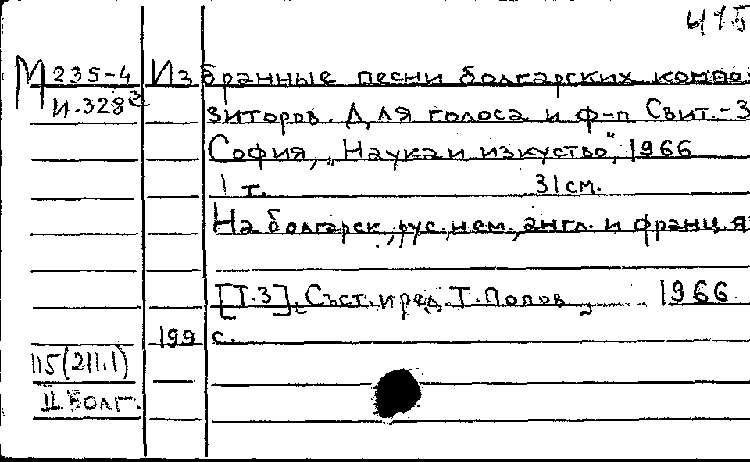 415
М 235-4 Избранные песни болгарских компо-
И.328³ зиторов. Для голоса и ф-п Свит.-3
София, „Наука и изкуство", 1966
1 т. 31 см.
На болгарск, рус. нем., англ. и франц. я
[Т.3], Съст. и ред. Т. Попов, 1966
199 с.
115(211.1)
II. Болг.